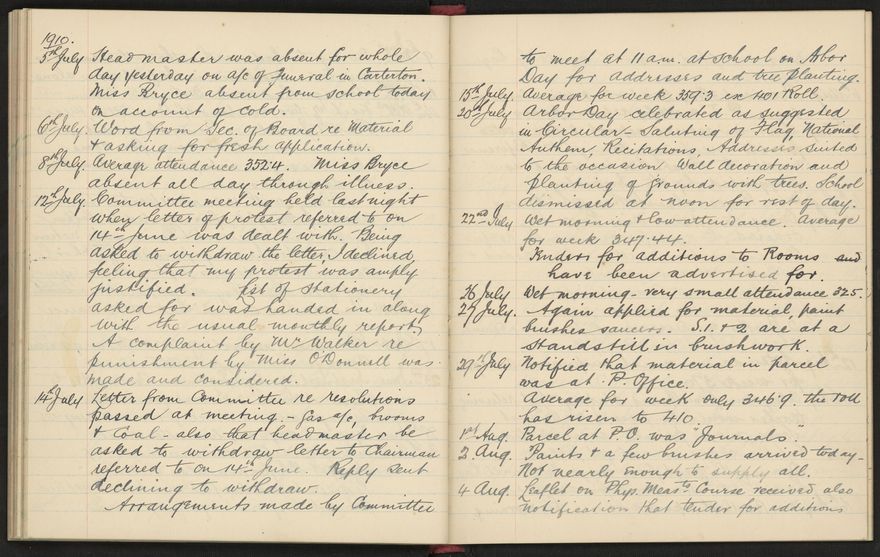 1910.
5th July Headmaster was absent for whole
day yesterday on a/c of Funeral in Carterton.
Miss Bryce absent from school today
on account of cold.
6th July. Word from Sec. of Board re Material
& asking for fresh application.
8th July. Average attendance 352.4. Miss Bryce
absent all day through illness.
12th July Committee meeting held last night
when letter of protest referred to on
14th June was dealt with. Being
asked to withdraw the letter, I declined,
feeling that my protest was amply
justified. List of Stationery
asked for was handed in along
with the usual monthly report.
A complaint by Mr Walker re
punishment by Miss O'Donnell was
made and considered.
14th July Letter from Committee re resolutions
passed at meeting, - Gas a/c, brooms
& Coal - also that headmaster be
asked to withdraw letter to Chairman
referred to on 14th June. Reply sent
declining to withdraw.
Arrangements made by Committee
to meet at 11 a.m. at school on Arbor
Day for addresses and tree planting.
15th July. Average for week 359.3 ex 401 Roll.
20th July Arbor Day celebrated as suggested
in Circular - Saluting of Flag, National
Anthem, Recitations, Addresses suited
to the occasion Wall decoration and
planting of grounds with trees. School
dismissed at noon for rest of day.
22nd July Wet morning & low attendance. Average
for week 347.44.
Tenders for additions to Rooms and
have been advertised for.
26 July Wet morning - very small attendance 325.
27 July. Again applied for material, paint
brushes saucers. S.1. & 2 are at a
standstill in brushwork.
29th July Notified that material in parcel
was at P. Office.
Average for week only 346.9. the roll
has risen to 410
1st Aug. Parcel at P.O. was "Journals".
2. Aug. Paints & a few brushes arrived today -
Not nearly enough to supply all.
4 Aug. Leaflet on Phys. Meas.ts Course received also
notification that tender for additions